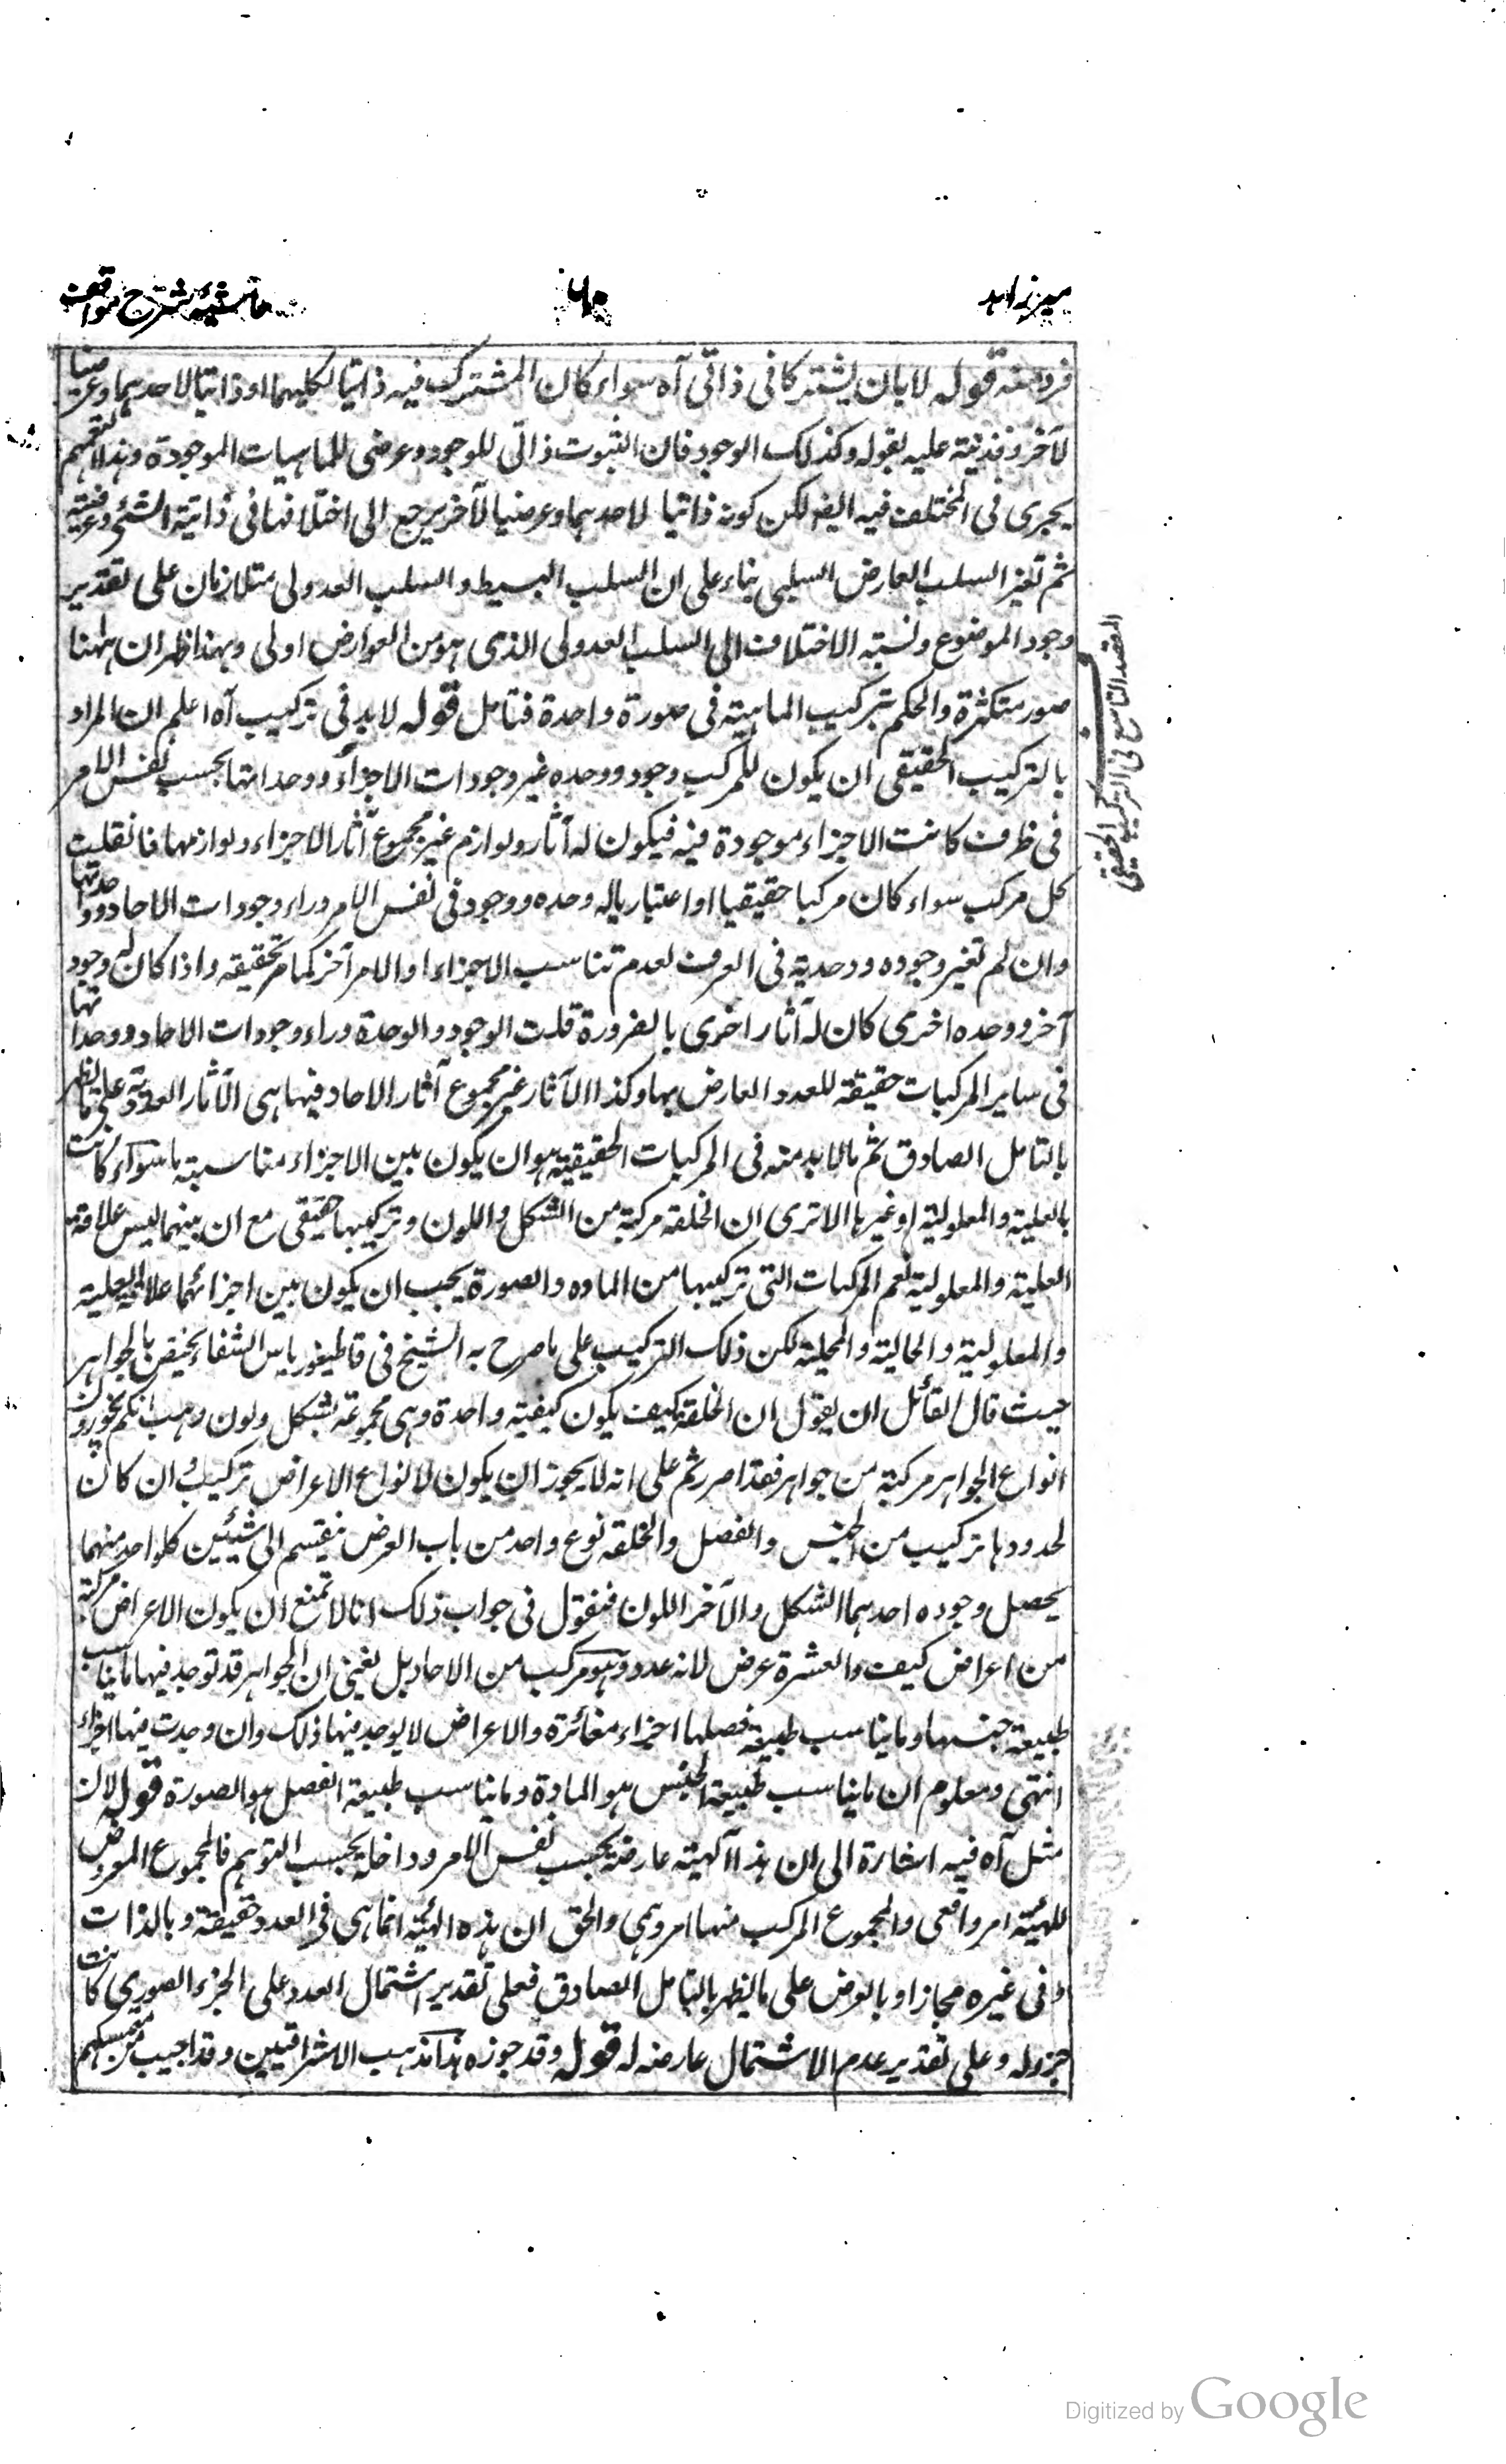 ميرزاهد
٦٥
حاشيه شرح مواقف
فرد منه قوله لا بان يشتركا فى ذاتى آه سواء كان المشترك فيه ذاتيا لكليهما او ذاتيا لاحدهما وعرضيا
لآخر وقد نبه عليه بقوله وكذلك الوجود فان الثبوت ذاتى للوجود وعرضى للماهيات الموجودة وهذا التعميم
يجرى فى المختلف فيه ايضا لكن كونه ذاتيا لاحدهما وعرضيا لآخر يرجع الى اختلافهما فى ذاتية الشئ وعرضيته
ثم تغير السلب العارض السلبى بناء على ان السلب البسيط والسلب العدولى متلازمان على تقدير
وجود الموضوع ونسبة الاختلاف الى السلب العدولى الذى هو من العوارض اولى وبهذا ظهر ان ههنا
صور متكثرة والحكم بتركيب الماهية فى صورة واحدة فتامل قوله لابد فى تركيب آه اعلم ان المراد
بالتركيب الحقيقى ان يكون للمركب وجود ووحده غير وجودات الاجزاء ووحداتها بحسب نفس الامر
فى ظرف كانت الاجزاء موجودة فيه فيكون له آثار ولوازم غير مجموع آثار الاجزاء ولوازمها فان قلت
كل مركب سواء كان مركبا حقيقيا او اعتباريا له وحده ووجود فى نفس الامر وراء وجودات الاحاد ووحداتها
وان لم تغير وجوده ووحدته فى العرف لعدم تناسب الاجزاء او الامر آخر كما مر تحقيقه واذا كان له وجود
آخر ووحده اخرى كان له آثار اخرى بالضرورة قلت الوجود والوحدة وراء وجودات الاحاد ووحداتها
فى ساير المركبات حقيقة للعدد العارض بها وكذا الآثار غير مجموع آثار الاحاد فيها هى الآثار العددية على ما يظهر
بالتامل الصادق ثم ما لابد منه فى المركبات الحقيقية هو ان يكون بين الاجزاء مناسبة ما سواء كانت
بالعلية والمعلولية او غيرها الا ترى ان الخلقة مركبة من الشكل واللون وتركيبها حقيقى مع ان بينهما ليس علاقة
العلية والمعلولية نعم المركبات التى تركيبها من الماده والصورة يجب ان يكون بين اجزائهما علاقة العلية
والمعلولية والحالية والمحلية لكن ذلك التركيب على ما صرح به الشيخ فى قاطيغورياس الشفاء يختص بالجواهر
حيث قال لقائل ان يقول ان الخلقة كيف يكون كيفية واحدة وهى مجموعة بشكل ولون وهب انكم تجوزون
انواع الجواهر مركبة من جواهر فقد اصررتم على انه لا يجوز ان يكون لانواع الاعراض تركيب وان كان
لحدودها تركيب من الجنس والفصل والخلقة نوع واحد من باب العرض ينقسم الى شيئين كلواحد منهما
يحصل وجوده احدهما الشكل والآخر اللون فنقول فى جواب ذلك انا لا نمنع ان يكون الاعراض مركبة
من اعراض كيف والعشرة عرض لانه عدد وهو مركب من الاحاد بل نعنى ان الجواهر قد توجد فيها ما يناسب
طبيعة جنسها وما يناسب طبيعة فصلها اجزاء مغائرة والاعراض لا يوجد فيها ذلك وان وجدت فيها اجزاء
انتهى ومعلوم ان ما يناسب طبيعة الجنس هو المادة وما يناسب طبيعة الفصل هو الصورة قوله لان
مثل آه فيه اشارة الى ان هذا الهيئة عارضة بحسب نفس الامر وداخلة بحسب التوهم فالمجموع المعروض
للهيئة امر واقعى والمجموع المركب منها امر وهمى والحق ان هذه الهيئة انما هى فى العدد حقيقة وبالذات
وفى غيره مجازا وبالعرض على ما يظهر بالتامل الصادق فعلى تقدير اشتمال العدد على الجزء الصورى كانت
جزء له وعلى تقدير عدم الاشتمال عارضه له قوله وقد جوزه هذا مذهب الاشراقيين وقد اجيب من متمسكهم
المقصد التاسع فى التركيب الحقيقى
Digitized by Google